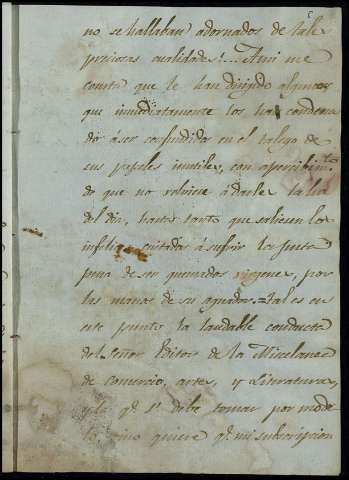 no se hallaban adornados de tales
preciosas cualidades!... A mi me
consta que le han dirijido algunos
que inmediatamente los ha condena
do á ser confundidos en el talego de
sus papeles inutiles, con apercibim.to
de que no volviese á darles la luz
del dia, hasta tanto que saliesen los
infelices cuitados á sufrir la justa
pena de ser quemados virgenes, por
las manos de su aguador. = Tal es en
este punto la laudable conducta
del Señor Editor de la Miscelanea
de Comercio, artes, y Literatura,
y la q.e se debe tomar por mode
lo, sino quiere q.e mi subscripcion